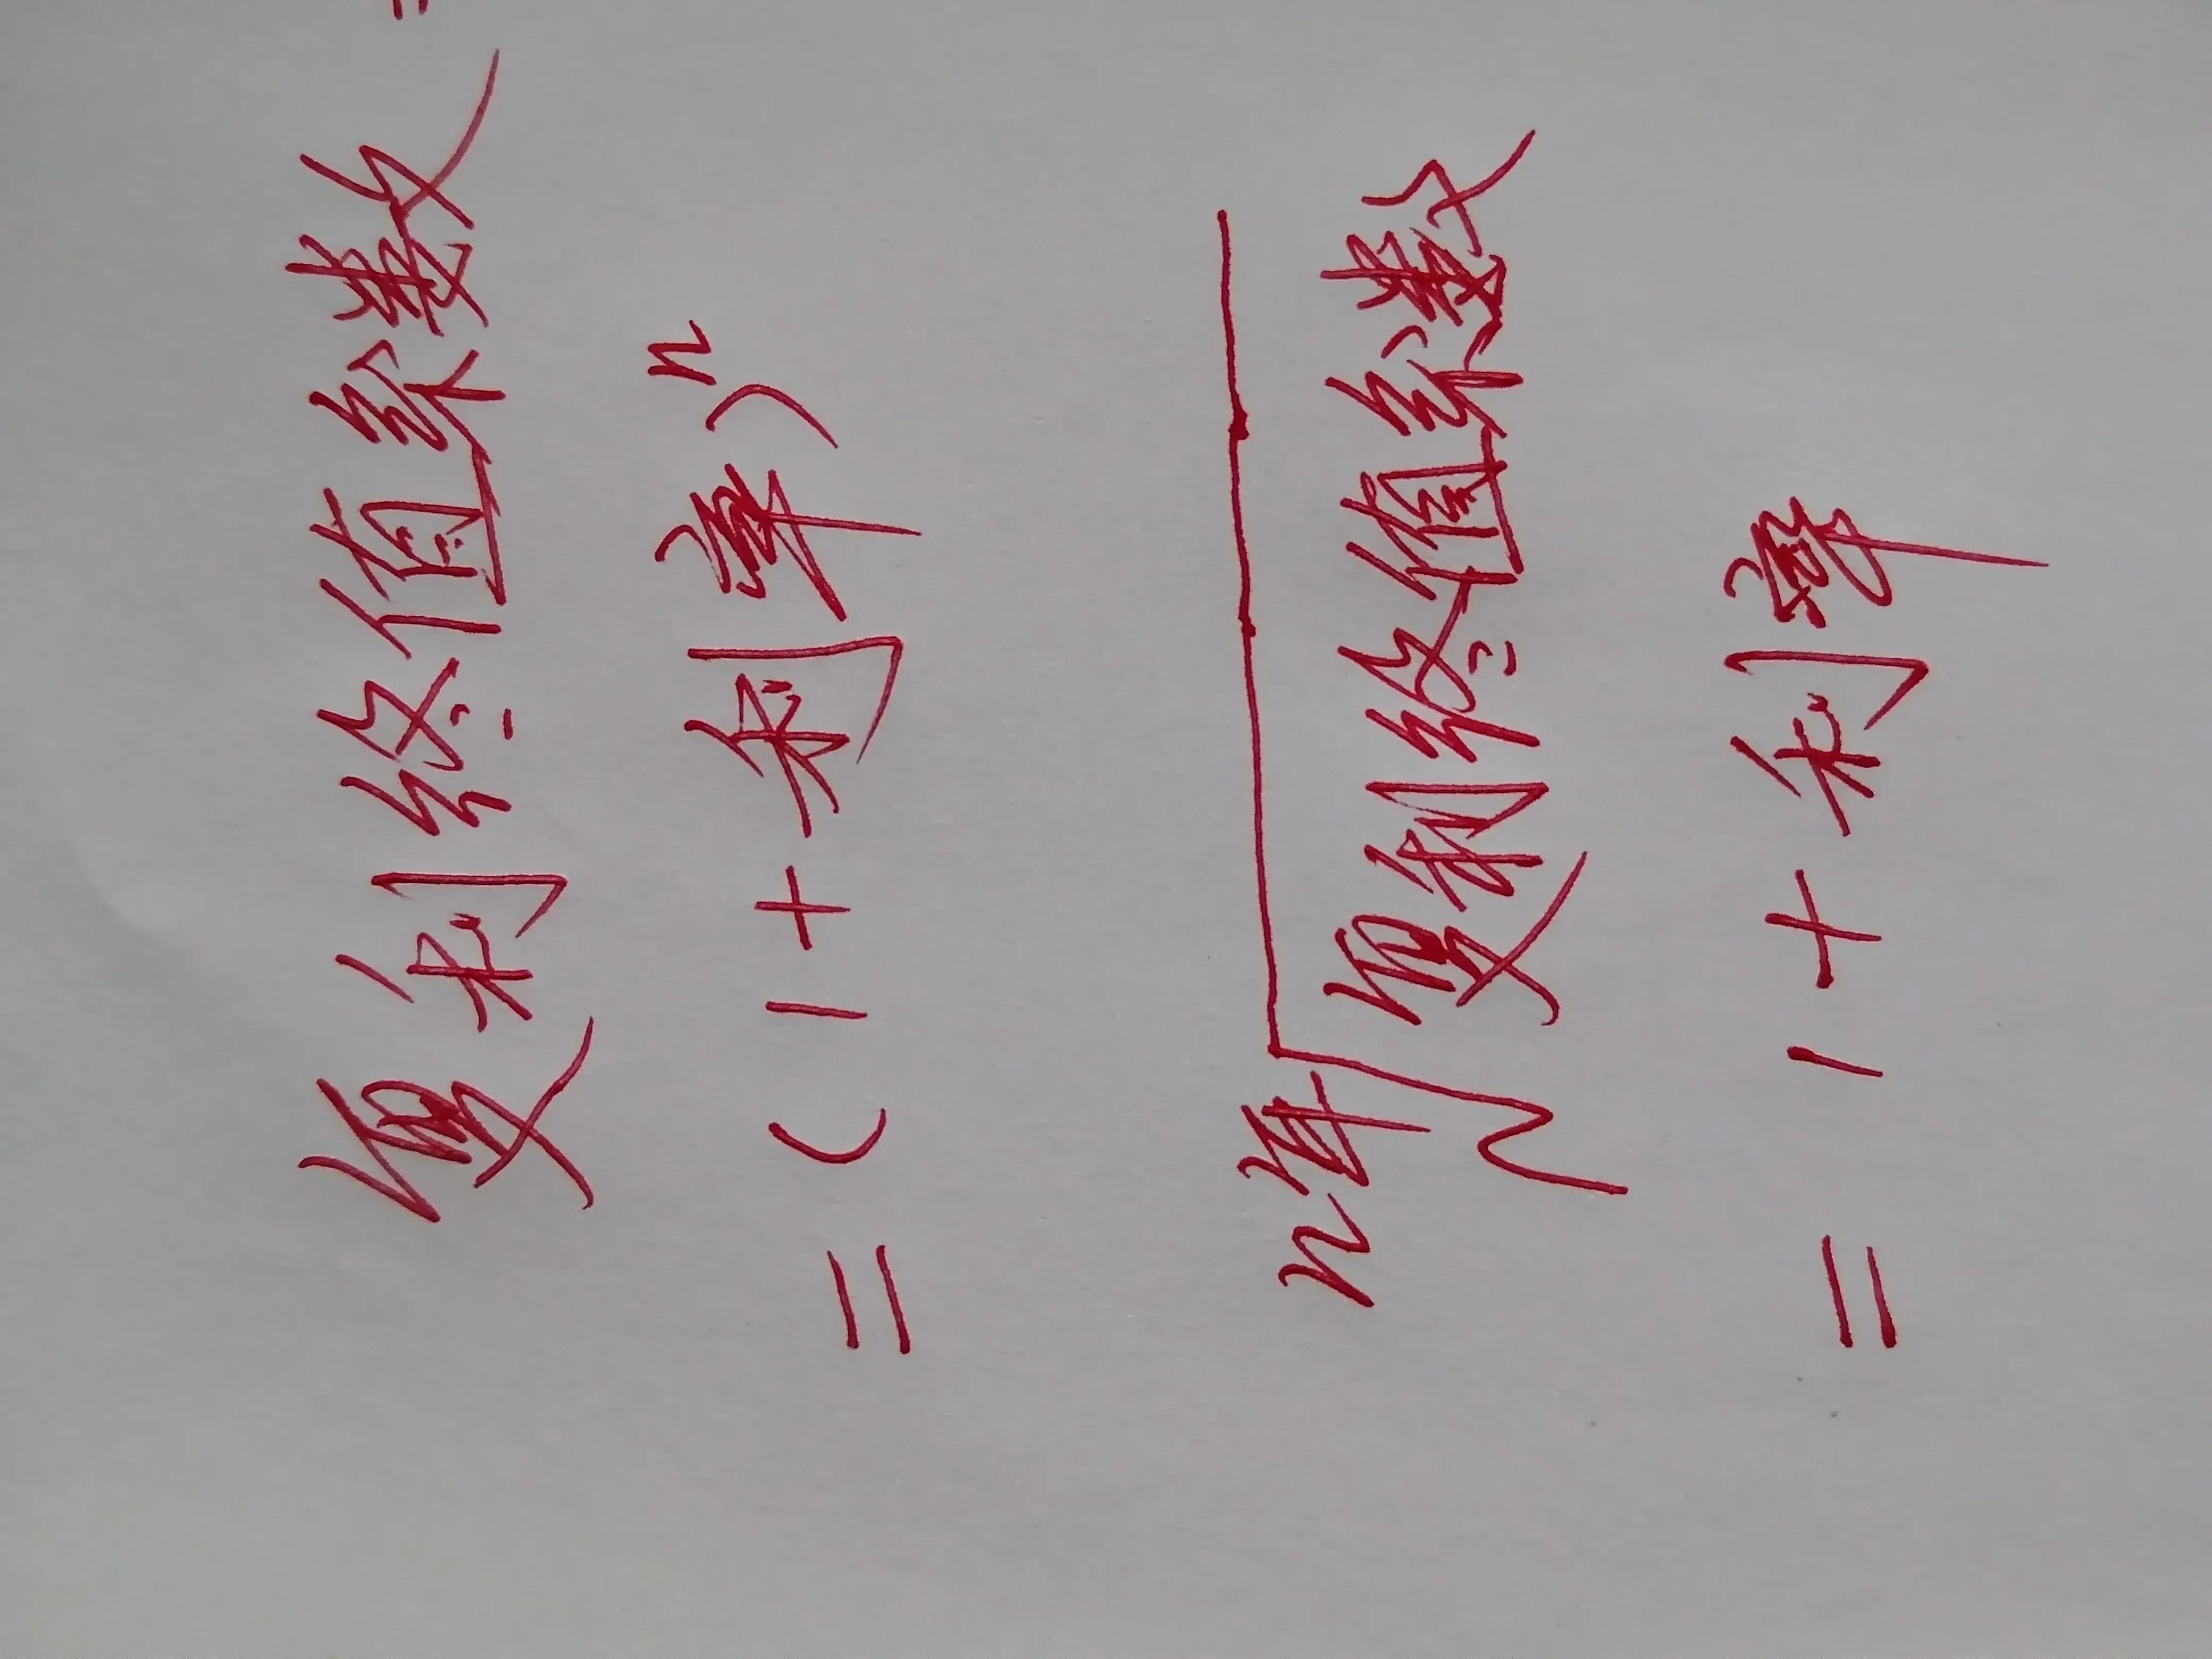 复利终值系数
=(1+利率)ⁿ
n年√复利终值系数
=1+利率